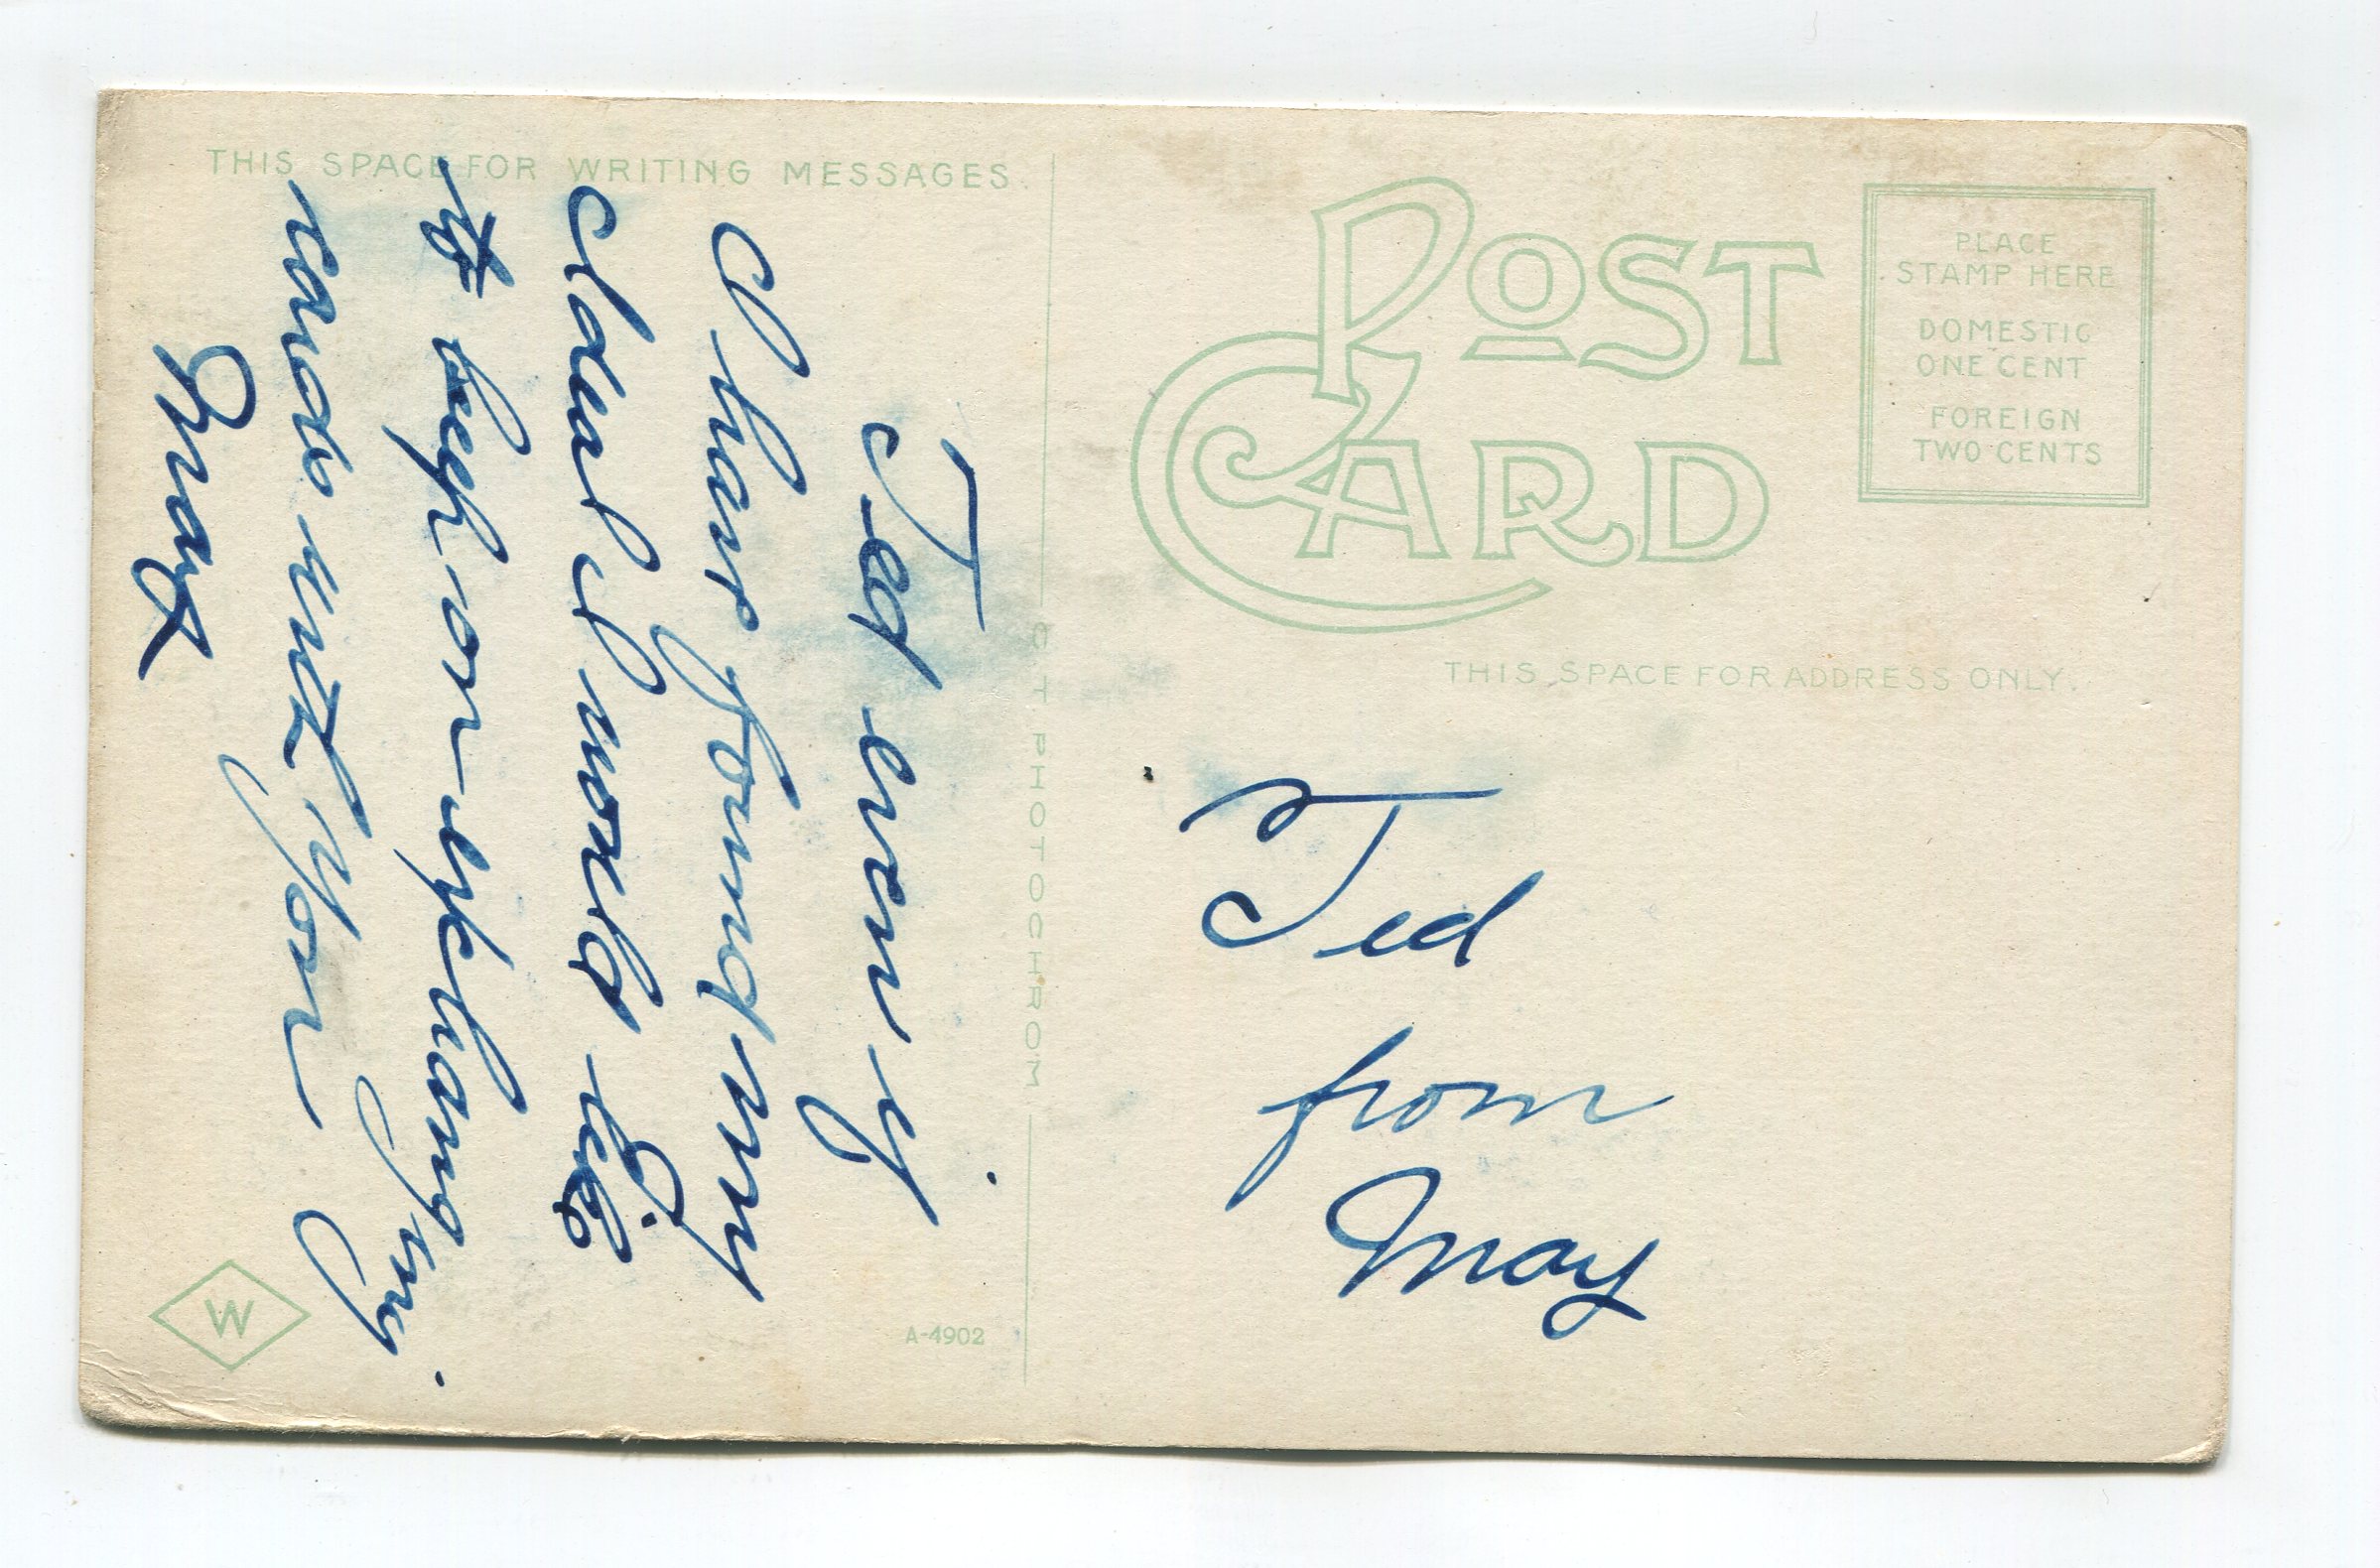 THIS SPACE FOR WRITING MESSAGES.
Ted
I have found my
I would like
to keep on exchanging
cards with you
May
W
A-4902
C T PHOTOCHROM
POST CARD
PLACE
STAMP HERE
DOMESTIC
ONE CENT
FOREIGN
TWO CENTS
THIS SPACE FOR ADDRESS ONLY.
Ted
from
May